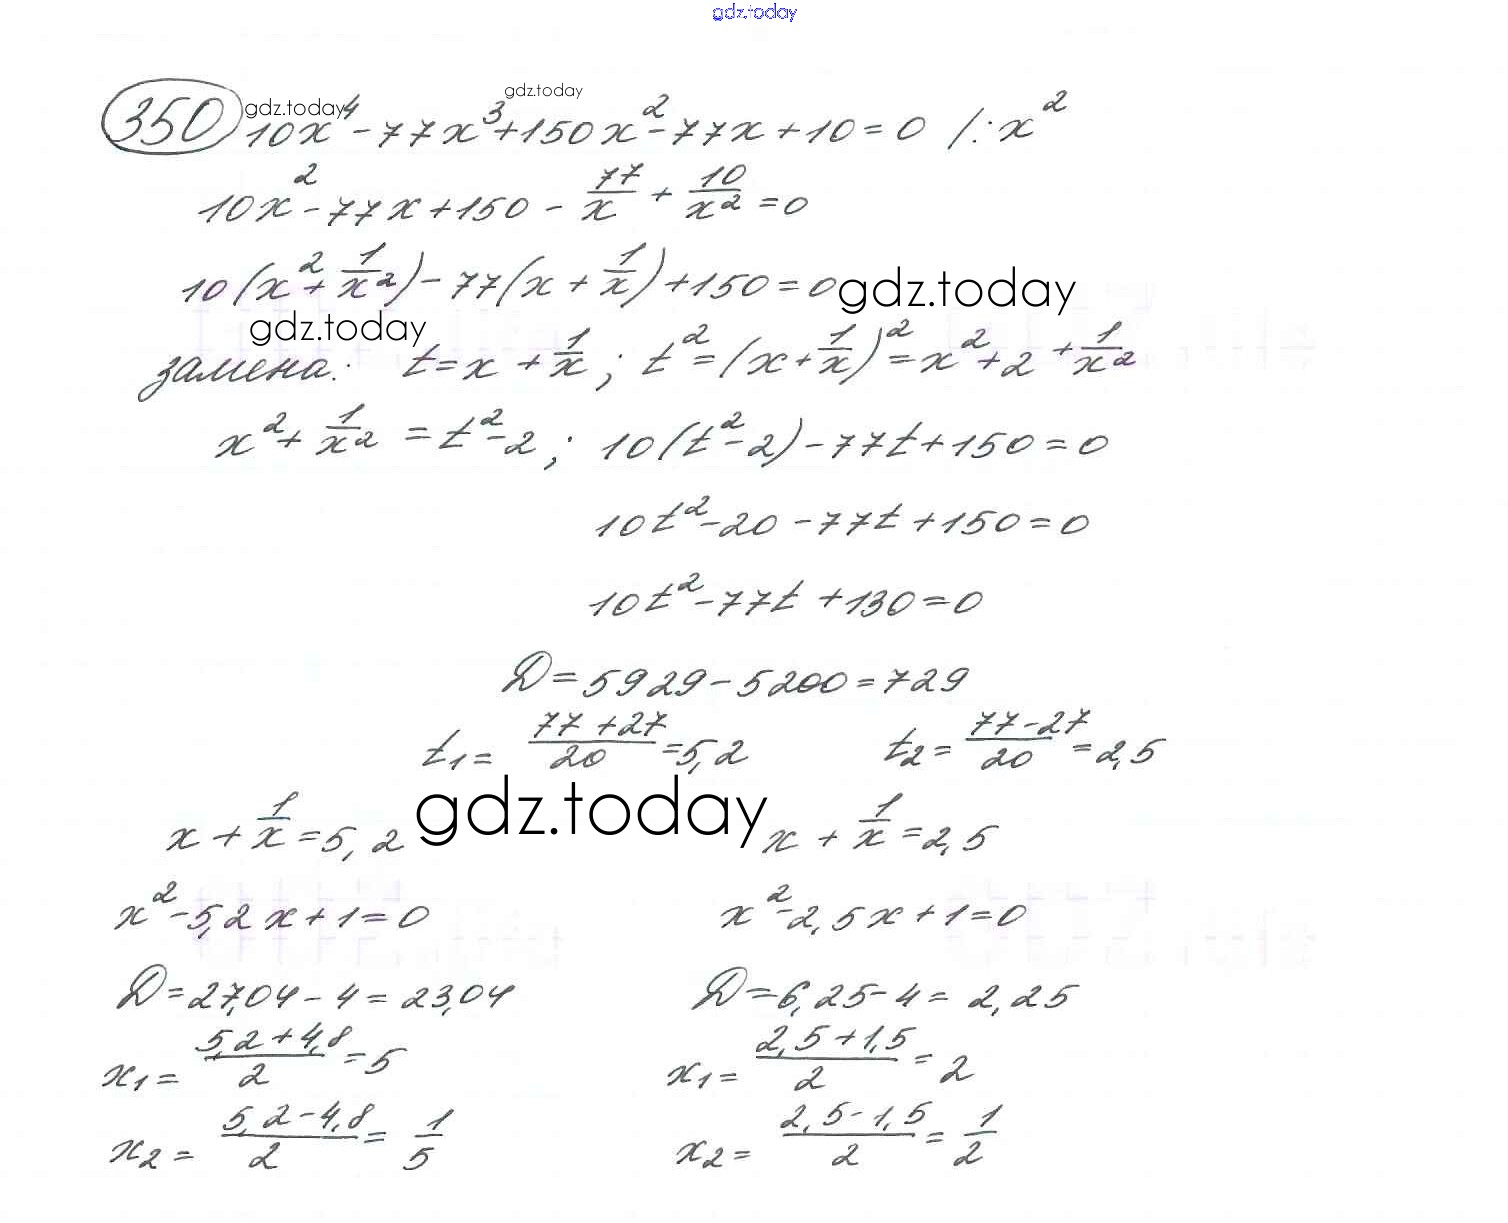 gdz.today
gdz.today
gdz.today
350 10x⁴-77x³+150x²-77x+10=0 /:x²
10x²-77x+150-77/x+10/x²=0
10(x²+1/x²)-77(x+1/x)+150=0
gdz.today
gdz.today
замена: t=x+1/x; t²=(x+1/x)²=x²+2+1/x²
x²+1/x²=t²-2; 10(t²-2)-77t+150=0
10t²-20-77t+150=0
10t²-77t+130=0
D=5929-5200=729
t₁=(77+27)/20=5,2 t₂=(77-27)/20=2,5
gdz.today
x+1/x=5,2 x+1/x=2,5
x²-5,2x+1=0 x²-2,5x+1=0
D=27,04-4=23,04 D=6,25-4=2,25
x₁=(5,2+4,8)/2=5 x₁=(2,5+1,5)/2=2
x₂=(5,2-4,8)/2=1/5 x₂=(2,5-1,5)/2=1/2